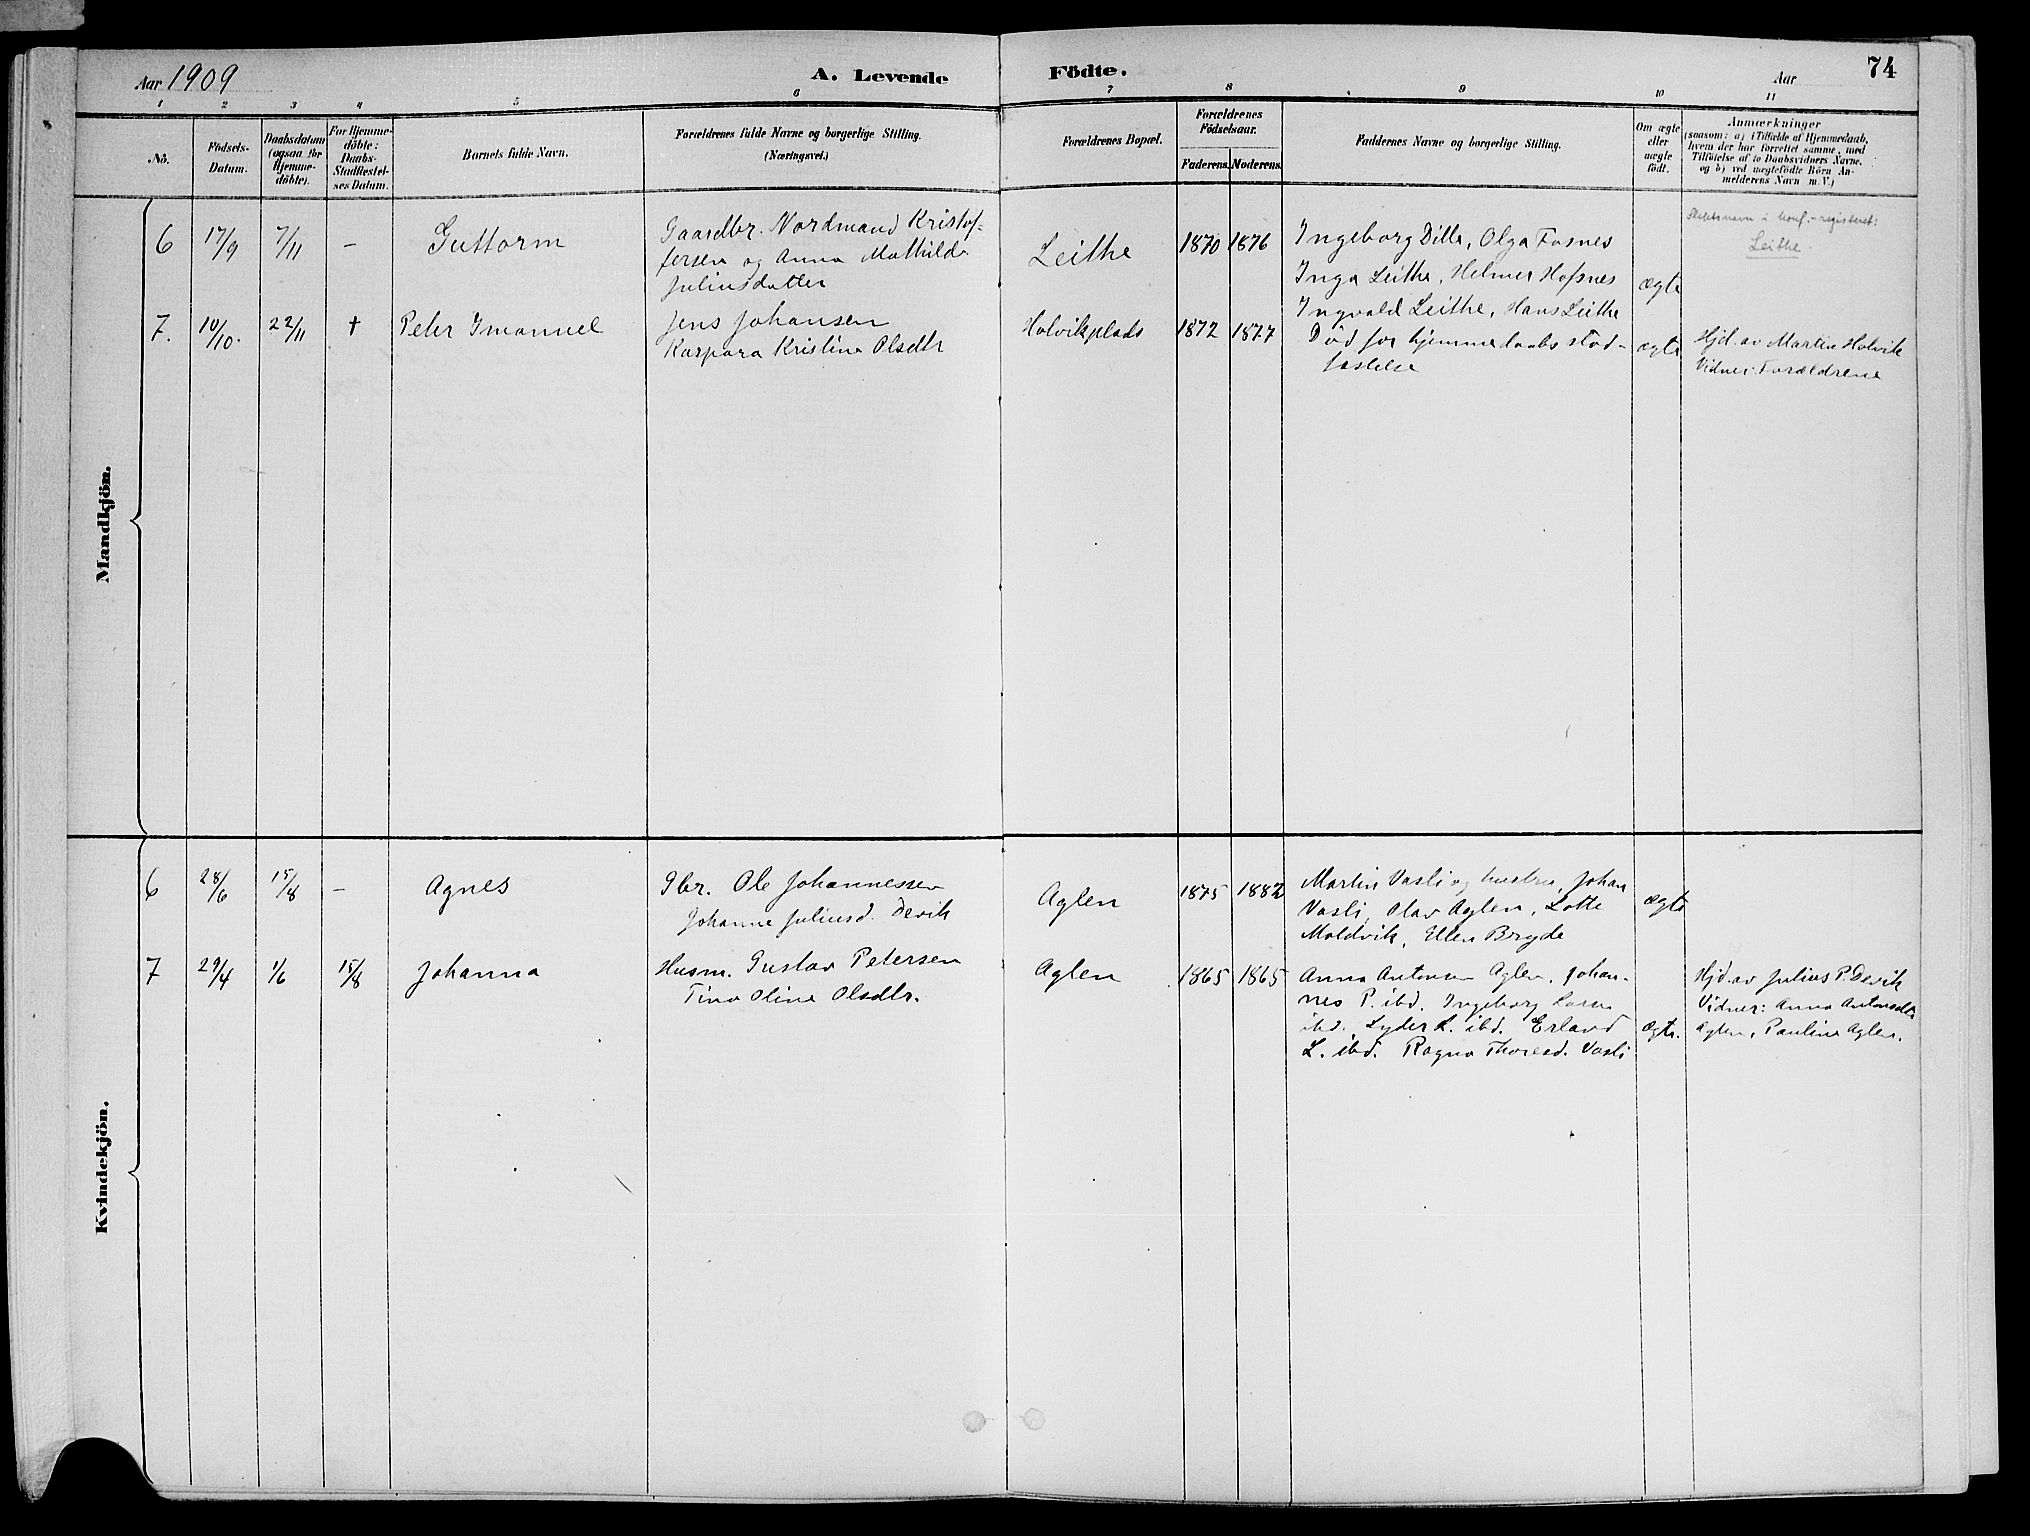 Aar 1909
A. Levende
Födte.
Aar
74
1 2 3 4 5 6 7 8 9 10 11
No.
Födsels-
Datum.
Daabsdatum
(ogsaa for
Hjemme-
döbte).
For Hjemme-
döbte:
Daabs-
Stadfæstel-
ses Datum.
Barnets fulde Navn.
Forældrenes fulde Navne og borgerlige Stilling.
(Næringsvei.)
Forældrenes Bopæl.
Forældrenes
Födselsaar.
Faderens. Moderens.
Faddernes Navne og borgerlige Stilling.
Om ægte
eller
uægte
födt.
Anmærkninger
(saasom: a) i Tilfælde af Hjemmedaab,
hvem der har forrettet samme, med
Tilföielse af to Daabsvidners Navne,
og b) ved uægtefödte Börn An-
melderens Navn m. V.)
Mandkjön.
6
17/9
7/11
-
Guttorm
Gaardbr. Nordmand Kristof-
fersen og Anna Mathilde
Juliusdatter
Leithe
1870
1876
Ingeborg Dille, Olga Fosnes
Inga Leithe, Helmer Hofsnes
Ingvald Leithe, Hans Leithe
ægte
Slektsnavn i konf.-registeret:
Leithe.
7.
10/10.
22/11
†
Peter Imanuel
Jens Johansen
Kaspara Kristine Olsdtr
Holvikplads
1872
1877
Død før hjemmedaabs stad-
fæstelse
ægte
Hjd. av Martin Holvik
Vidner: Forældrene
Kvindekjön.
6
28/6
15/8
-
Agnes
Gbr. Ole Johannessen
Johanne Juliusd. Devik
Aglen
1875
1882
Martin Vasli og hustru, Johan
Vasli, Olav Aglen, Lotte
Moldvik, Ellen Bryde
ægte
7
29/4
1/6
15/8
Johanna
Husm. Gustav Petersen
Tina Oline Olsdtr.
Aglen
1865
1865
Anna Antonsen Aglen, Johan-
nes P. ibd. Ingeborg Larsen
ibd. Lyder L. ibd. Erland
L. ibd. Ragna Thoresd. Vasli
ægte.
Hjd. av Julius P. Devik
Vidner: Anna Antonsdtr
Aglen, Pauline Aglen.